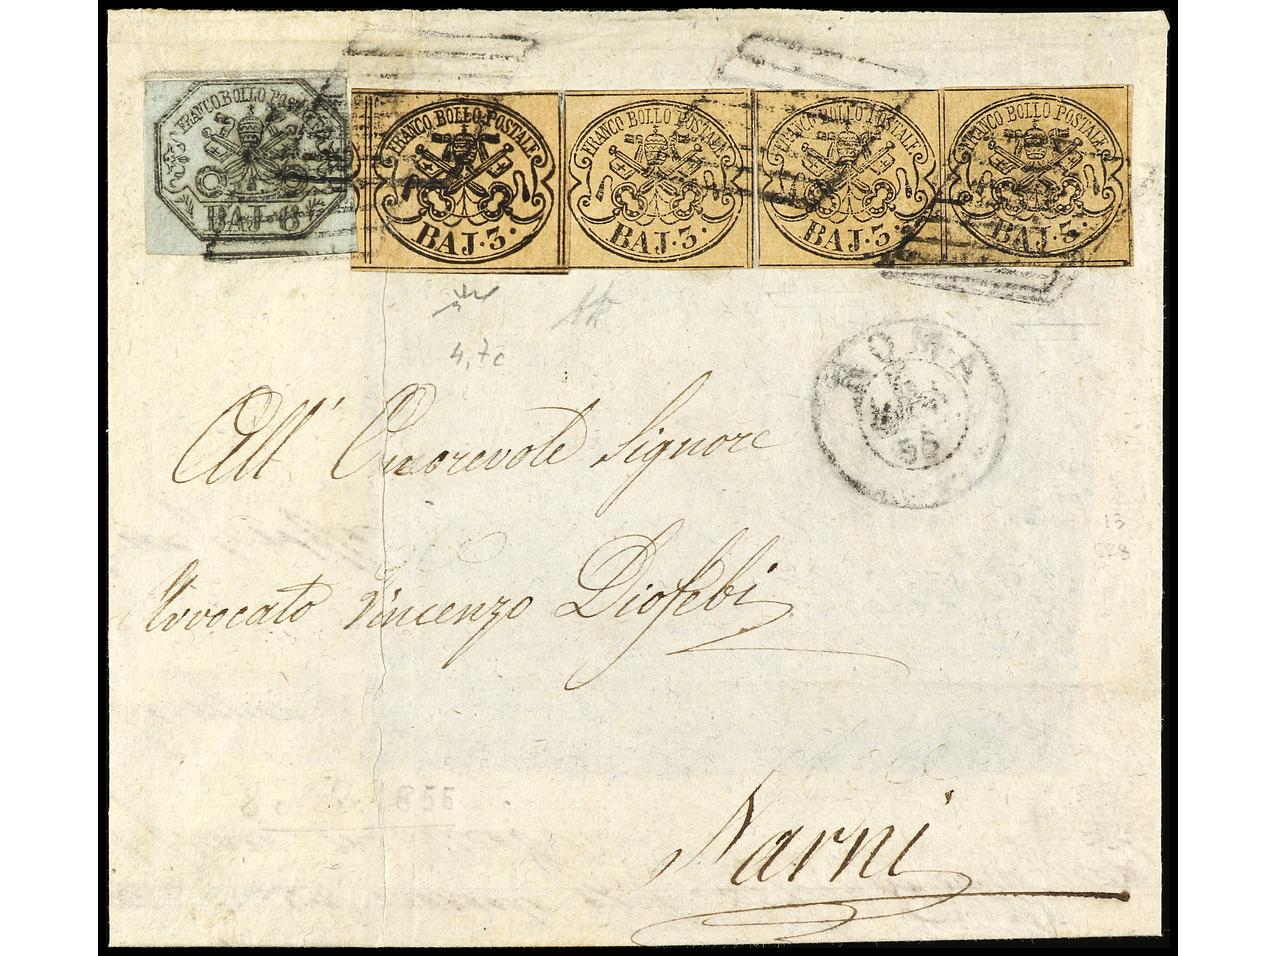 FRANCO BOLLO POSTALE
BAJ·8
FRANCO BOLLO POSTALE
BAJ·3·
FRANCO BOLLO POSTALE
BAJ·3·
FRANCO BOLLO POSTALE
BAJ·3·
FRANCO BOLLO POSTALE
BAJ·3·
4,7c
ROMA
55
All' Onorevole Signore
13
528
Avvocato Vincenzo Diofebi
Narni